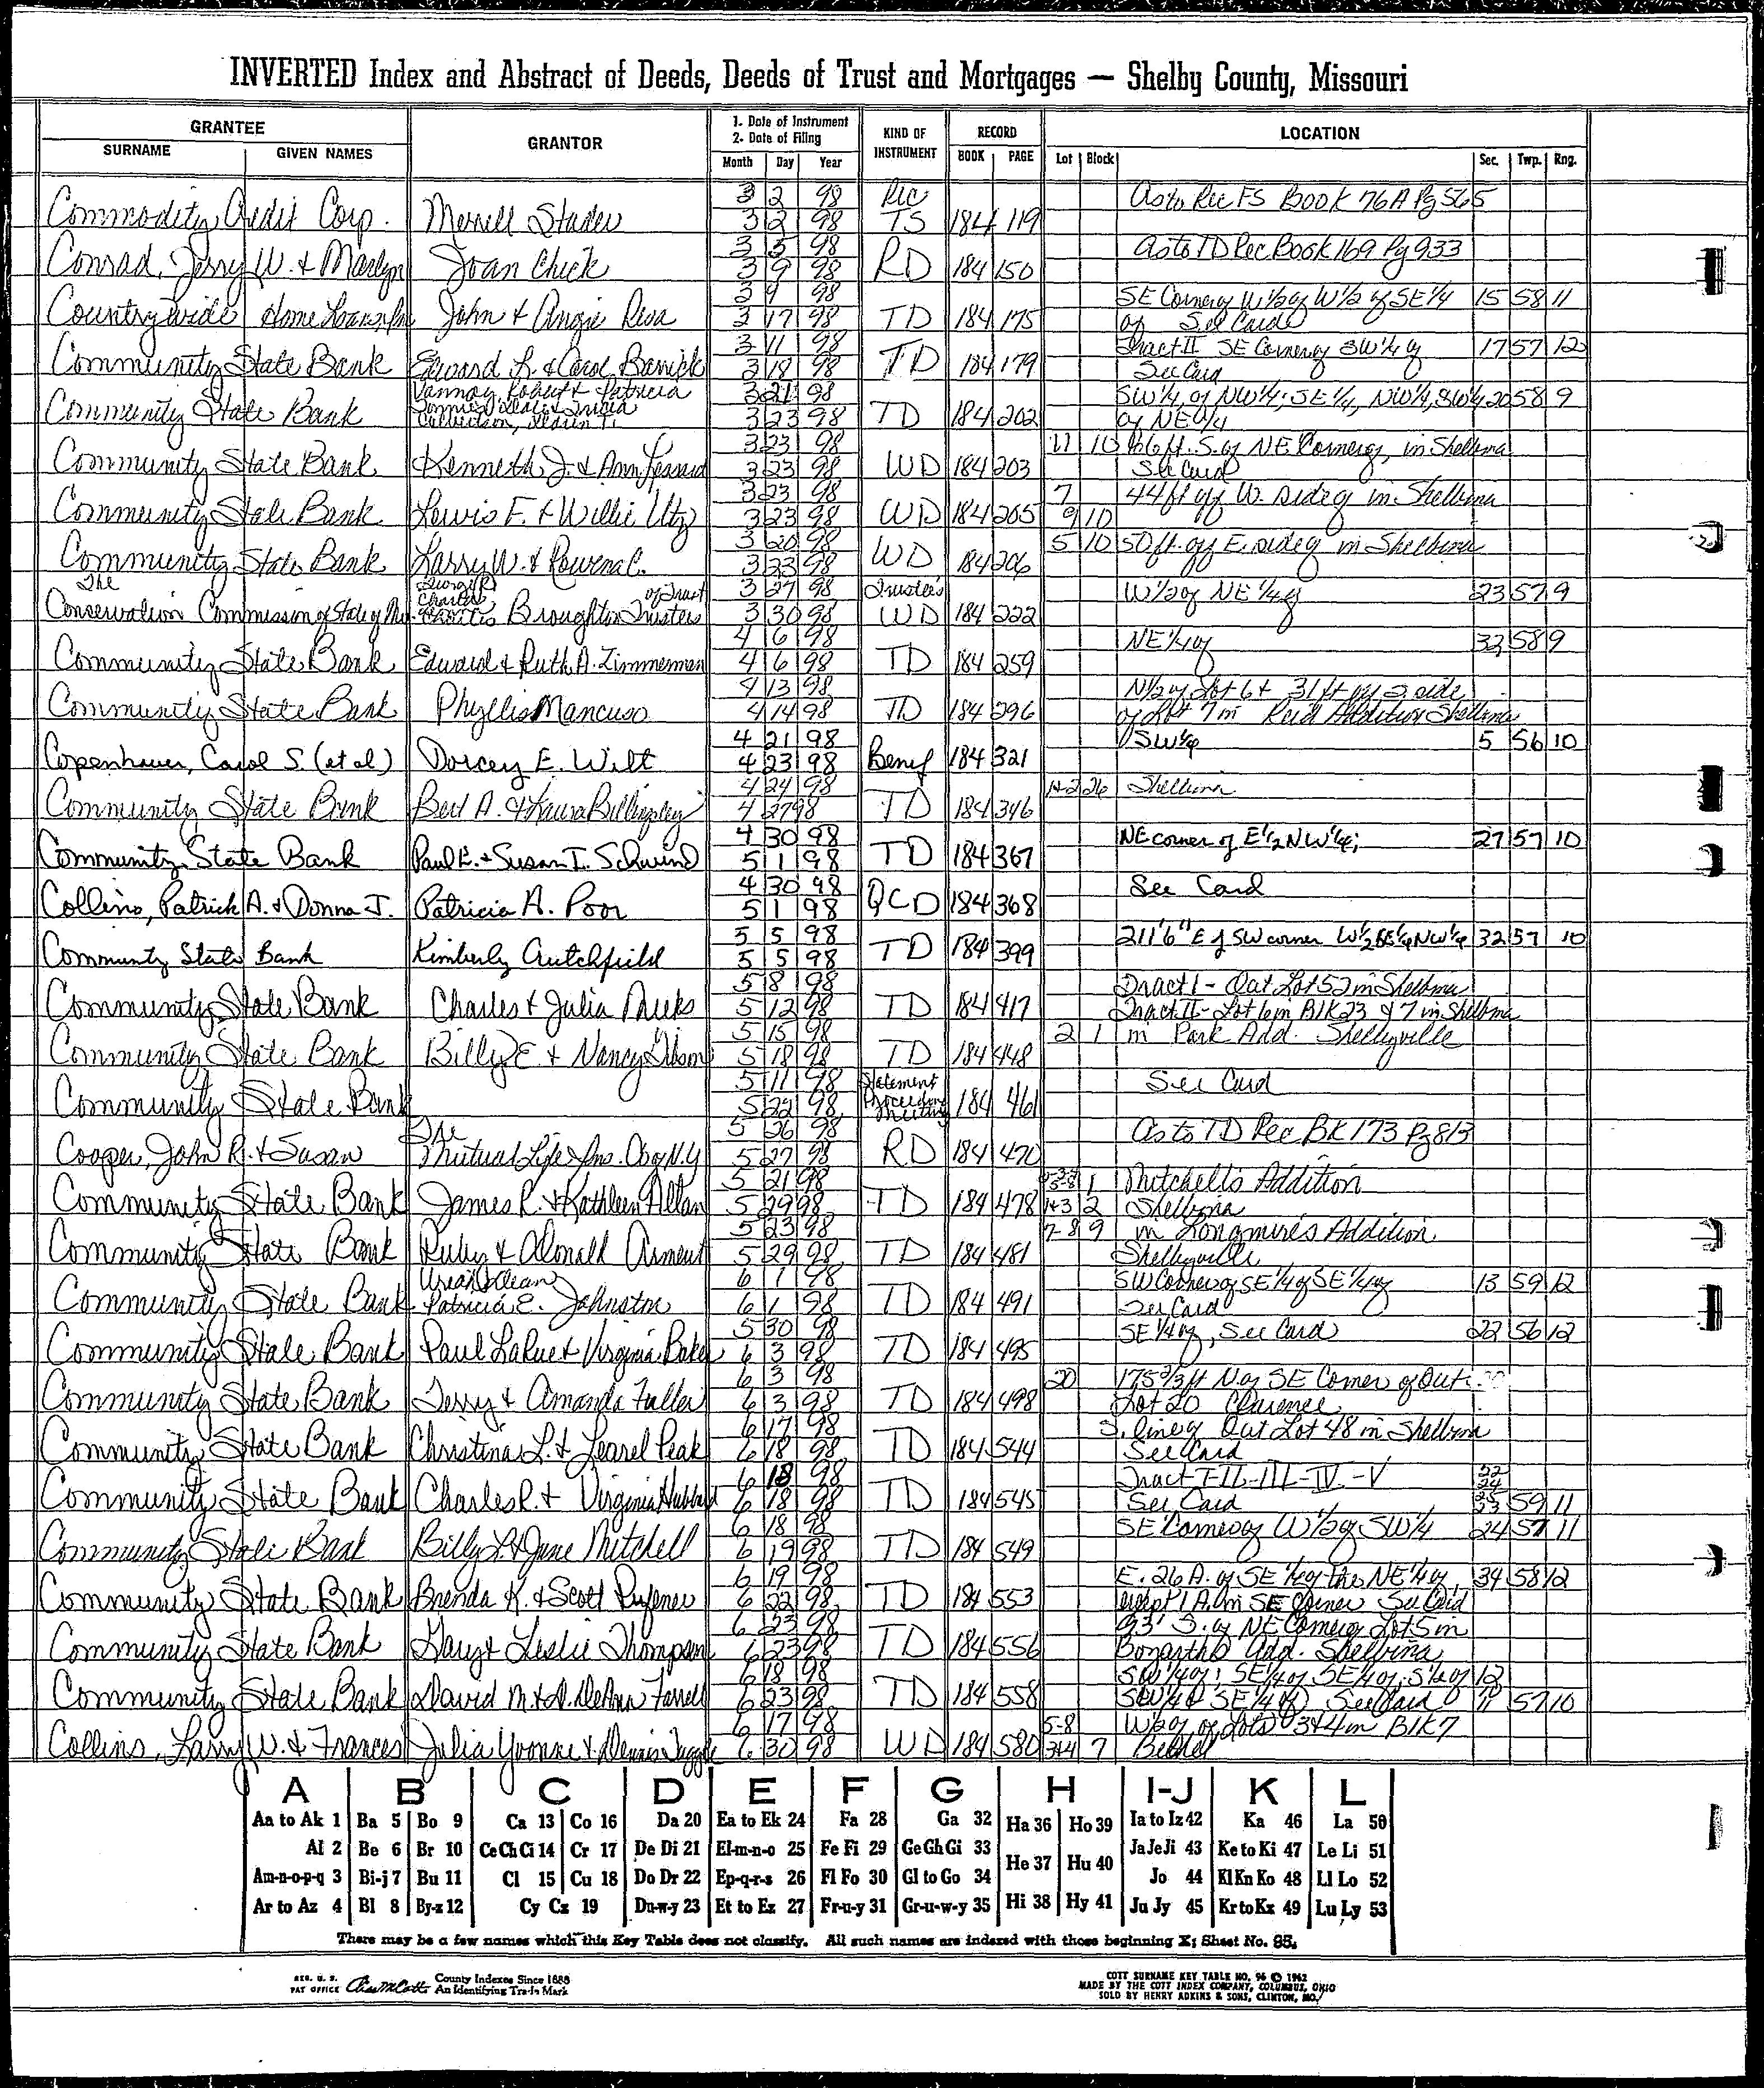 INVERTED Index and Abstract of Deeds, Deeds of Trust and Mortgages — Shelby County, Missouri
GRANTEE GRANTOR 1. Date of Instrument 2. Date of Filing KIND OF INSTRUMENT RECORD LOCATION
SURNAME GIVEN NAMES Month Day Year BOOK PAGE Lot Block Sec. Twp. Rng.
3 2 98 Ric As to Ric FS Book 76A Pg 565
Commodity Credit Corp. Merrell Stader 3 2 98 TS 184 119
3 5 98 As to TD Rec Book 169 Pg 933
Conrad, Jerry W. & Marlyn Joan Chick 3 9 98 RD 184 150
3 9 98 SE Corner of W 1/2 of W 1/2 of SE 1/4 15 58 11
Countrywide Home Loans Inc John & Angie Resa 3 17 98 TD 184 175 of See Card
3 11 98 Tract II SE Corner of SW 1/4 of 17 57 12
Community State Bank Edward L. & Carol Barrick 3 18 98 TD 184 179 See Card
Vannoy, Robert & Patricia 3 21 98 SW 1/4 of NW 1/4; SE 1/4, NW 1/4, SW 1/4 20 58 9
Community State Bank 3 23 98 TD 184 202 of NE 1/4
3 23 98 11 10 66 ft. S. of NE Corner of, in Shelbina
Community State Bank Kenneth J. & Ann 3 23 98 WD 184 203 See Card
3 23 98 7 44 ft off W. side of in Shelbina
Community State Bank Lewis F. & Willie Utz 3 23 98 WD 184 205 9 10
3 20 98 5 10 50 ft. off E. side of in Shelbina
Community State Bank Larry W. & Rowena C. 3 23 98 WD 184 206
The George R Charles of Trust 3 27 98 Trustee's W 1/2 of NE 1/4 of 23 57 9
Conservation Commission of State of Mo. Broughton Trustee 3 30 98 WD 184 222
4 6 98 NE 1/4 of 32 58 9
Community State Bank Edward & Ruth A. Zimmerman 4 6 98 TD 184 259
4 13 98 N 1/2 of Lot 6 & 31 ft of S side
Community State Bank Phyllis Mancuso 4 14 98 TD 184 296 of Lot 7 in Reid Addition Shelbina
4 21 98 SW 1/4 5 56 10
Copenhaver, Carol S. (et al) Dorcey E. Wilt 4 23 98 Benef 184 321
4 24 98 1+2 26 Shelbina
Community State Bank Bert A. & Laura Billingsley 4 27 98 TD 184 346
4 30 98 NE corner of E 1/2 NW 1/4; 27 57 10
Community State Bank Paul E. & Susan I. Schwind 5 1 98 TD 184 367
4 30 98 See Card
Collins, Patrick A. & Donna J. Patricia A. Poor 5 1 98 QCD 184 368
5 5 98 211'6" E of SW corner W 1/2 SE 1/4 NW 1/4 32 57 10
Community State Bank Kimberly Crutchfield 5 5 98 TD 184 399
5 8 98 Tract I - Out Lot 52 in Shelbina
Community State Bank Charles & Julia Meeks 5 12 98 TD 184 417 Tract II - Lot 6 in Blk 23 of 7 in Shelbina
5 15 98 2 1 in Park Add. Shelbyville
Community State Bank Billy E. & Nancy Gibson 5 18 98 TD 184 448
5 11 98 Statement See Card
Community State Bank 5 22 98 Proceedings Meeting 184 461
The 5 26 98 As to TD Rec BK 173 Pg 813
Cooper, John R. & Susan Mutual Life Ins. Co of N.Y 5 27 98 RD 184 470
5 21 98 1 Mitchell's Addition
Community State Bank James R. & Kathleen Allan 5 29 98 TD 184 478 1+3 2 Shelbina
5 23 98 7-8 9 in Longmire's Addition
Community State Bank Ruby & Donald Arment 5 29 98 TD 184 481 Shelbyville
Dean 6 1 98 SW Corner of SE 1/4 of SE 1/4 of 13 59 12
Community State Bank Patricia E. Johnston 6 1 98 TD 184 491 See Card
5 30 98 SE 1/4 of, See Card 22 56 12
Community State Bank Paul LaRue & Virginia Baker 6 3 98 TD 184 495
6 3 98 20 175 2/3 ft N. of SE Corner of Out
Community State Bank Terry & Amanda Fuller 6 3 98 TD 184 498 Lot 20 Clarence
6 17 98 S. line of Out Lot 48 in Shelbina
Community State Bank Christina L. & Learel Peak 6 18 98 TD 184 544 See Card
6 18 98 Tract I-II-III-IV-V
Community State Bank Charles R. & Virginia Hubbard 6 18 98 TD 184 545 See Card 59 11
6 18 98 SE Corner of W 1/2 of SW 1/4 24 57 11
Community State Bank Billy L. & Jane Mitchell 6 19 98 TD 184 549
6 19 98 E. 26 A. of SE 1/4 of the NE 1/4 of, 34 58 12
Community State Bank Brenda K. & Scott Rufener 6 22 98 TD 184 553 except 1 A. in SE Corner See Card
6 23 98 93' S. of NE Corner Lot 5 in
Community State Bank Gary & Leslie Thompson 6 23 98 TD 184 556 Bozarth's Add. Shelbina
6 18 98 SW 1/4 of; SE 1/4 of SE 1/4 of; S 1/2 of 12
Community State Bank David M. & D. DeAnn Farrell 6 23 98 TD 184 558 SW 1/4 & SE 1/4 of See Card 11 57 10
6 17 98 5-8 W 1/2 of of Lots 3+4 in Blk 7
Collins, Larry W. & Frances Julia Yvonne & Dennis Tuggle 6 30 98 WD 184 580 3+4 7 Bethel
A B C D E F G H I-J K L
Aa to Ak 1 Ba 5 Bo 9 Ca 13 Co 16 Da 20 Ea to Ek 24 Fa 28 Ga 32 Ha 36 Ho 39 Ia to Iz 42 Ka 46 La 50
Al 2 Be 6 Br 10 Ce Ch Ci 14 Cr 17 De Di 21 El-m-n-o 25 Fe Fi 29 Ge Gh Gi 33 He 37 Hu 40 Ja Je Ji 43 Ke to Ki 47 Le Li 51
Am-n-o-p-q 3 Bi-j 7 Bu 11 Cl 15 Cu 18 Do Dr 22 Ep-q-r-s 26 Fl Fo 30 Gl to Go 34 Jo 44 Kl Kn Ko 48 Ll Lo 52
Ar to Az 4 Bl 8 By-z 12 Cy Cz 19 Du-w-y 23 Et to Ez 27 Fr-u-y 31 Gr-u-w-y 35 Hi 38 Hy 41 Ju Jy 45 Kr to Kz 49 Lu Ly 53
There may be a few names which this Key Table does not classify. All such names are indexed with those beginning X; Sheet No. 95.
REG. U. S. PAT OFFICE County Indexes Since 1888 An Identifying Trade Mark
COTT SURNAME KEY TABLE NO. 96 © 1962
MADE BY THE COTT INDEX COMPANY, COLUMBUS, OHIO
SOLD BY HENRY ADKINS & SONS, CLINTON, MO.